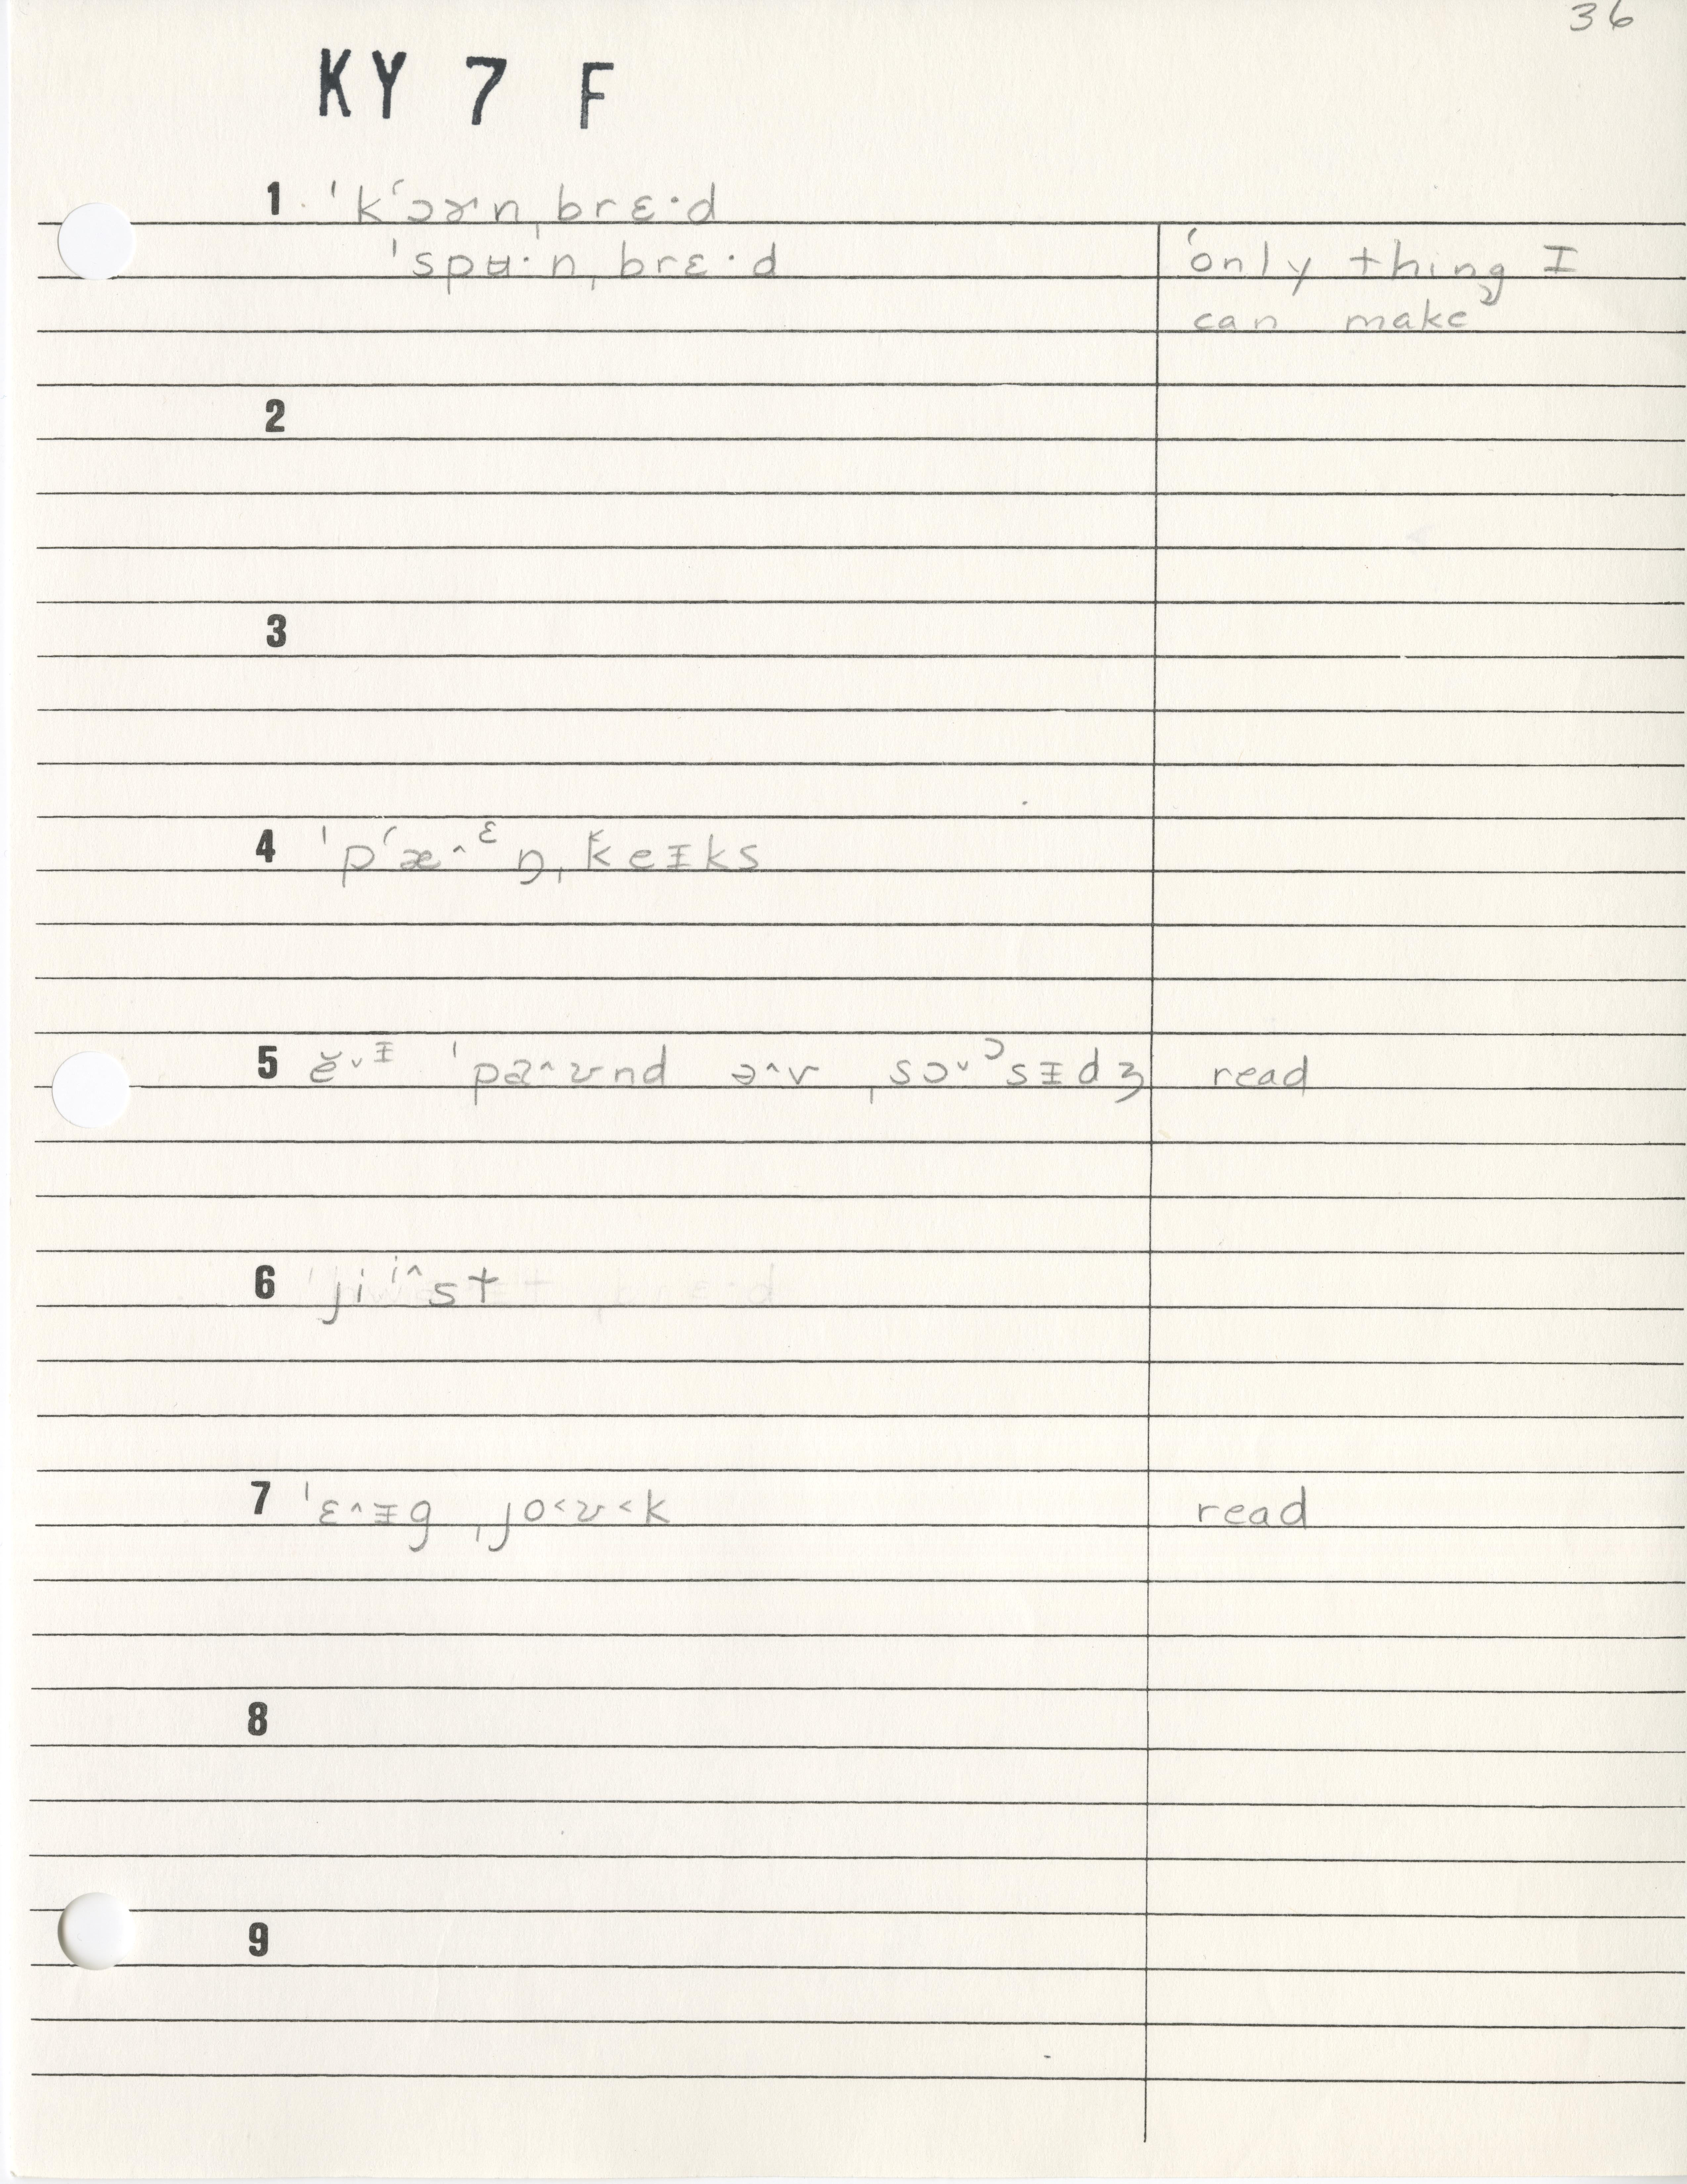 36
KY 7 F
1 ˈkʻɔɚnˌbrɛ·d
ˈspʉ·nˌbrɛ·d ʻonly thing I
can makeʼ
2
3
4 ˈpʻæ^ᵋŋˌkʻeᵻks
5 ĕ˅ᵻ ˈpa^ʊnd ə^v ˌsɔ˅ᵓsᵻdʒ read
6 ˈjiⁱ^st
7 ˈɛ^ᵻgˌjo<ʊ<k read
8
9